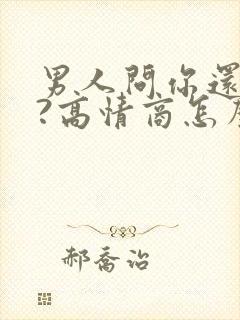 男人問你還
?高情商怎
郝喬治